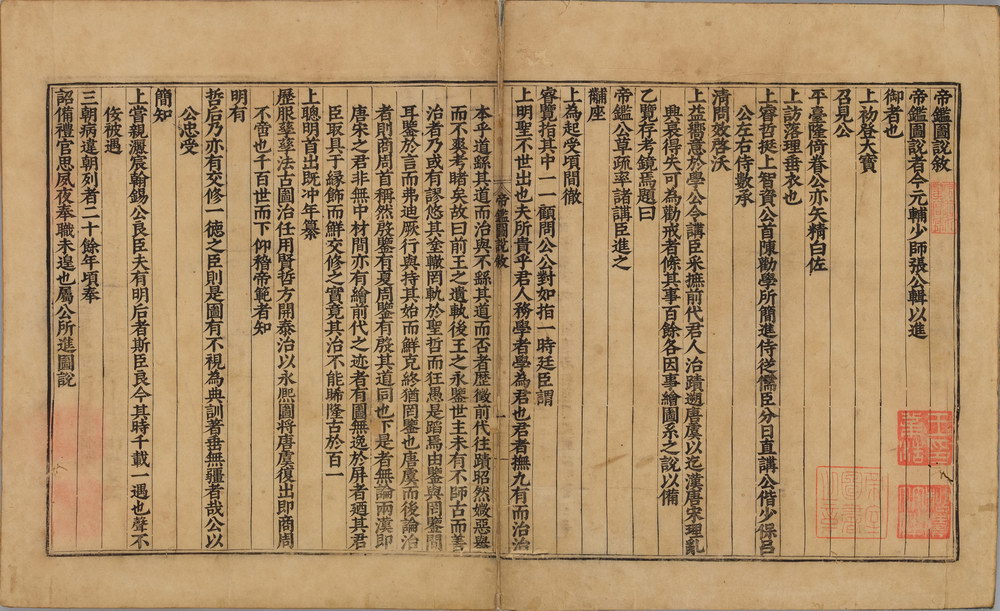 帝鑑圖說敘
帝鑑圖說者今元輔少師張公輯以進
御者也
上初登大寶
召見公
平臺隆倚眷公亦矢精白佐
上訪落理垂衣也
上睿哲挺上智資公首陳勸學所簡進侍從儒臣分日直講公偕少保呂
公左右侍數承
清問效啓沃
上益嚮意於學公令講臣采摭前代君人治蹟遡唐虞以迄漢唐宋理亂
興衰得失可為勸戒者條其事百餘各因事繪圖系之說以備
乙覽存考鏡焉題曰
帝鑑公草疏率諸講臣進之
黼座
上為起受頃間徹
睿覽指其中一一顧問公公對如指一時廷臣謂
上明聖不世出也夫所貴乎君人務學者學為君也君者撫九有而治治
帝鑑圖說敘
一
本乎道繇其道而治與不繇其道而否者歷徵前代往蹟昭然媺惡舉
而不爽考睹矣故曰前王之遺軌後王之永鑒世主未有不師古而善
治者乃或有謬悠其塗轍罔軌於聖哲而狂愚是蹈焉由鑒與罔鑒間
耳鑒於言而弗迪厥行與持其始而鮮克終猶罔鑒也唐虞而後論治
者則商周首稱然殷鑒有夏周鑒有殷其道同也下是者無論兩漢即
唐宋之君非無中材間亦有繪前代之迹者有圖無逸於屏者廼其君
臣取具于緣飾而鮮交修之實竟其治不能晞隆古於百一
上聰明首出既冲年纂
歷服孳孳法古圖治任用賢哲方開泰治以永熈圖將唐虞復出即商周
不啻也千百世而下仰稽帝範者知
明有
哲后乃亦有交修一德之臣則是圖有不視為典訓著垂無疆者哉公以
公忠受
簡知
上嘗親灑宸翰錫公良臣夫有明后者斯臣良今其時千載一遇也聲不
佞被遇
三朝病違朝列者二十餘年頃奉
詔備禮官思夙夜奉職未遑也屬公所進圖說